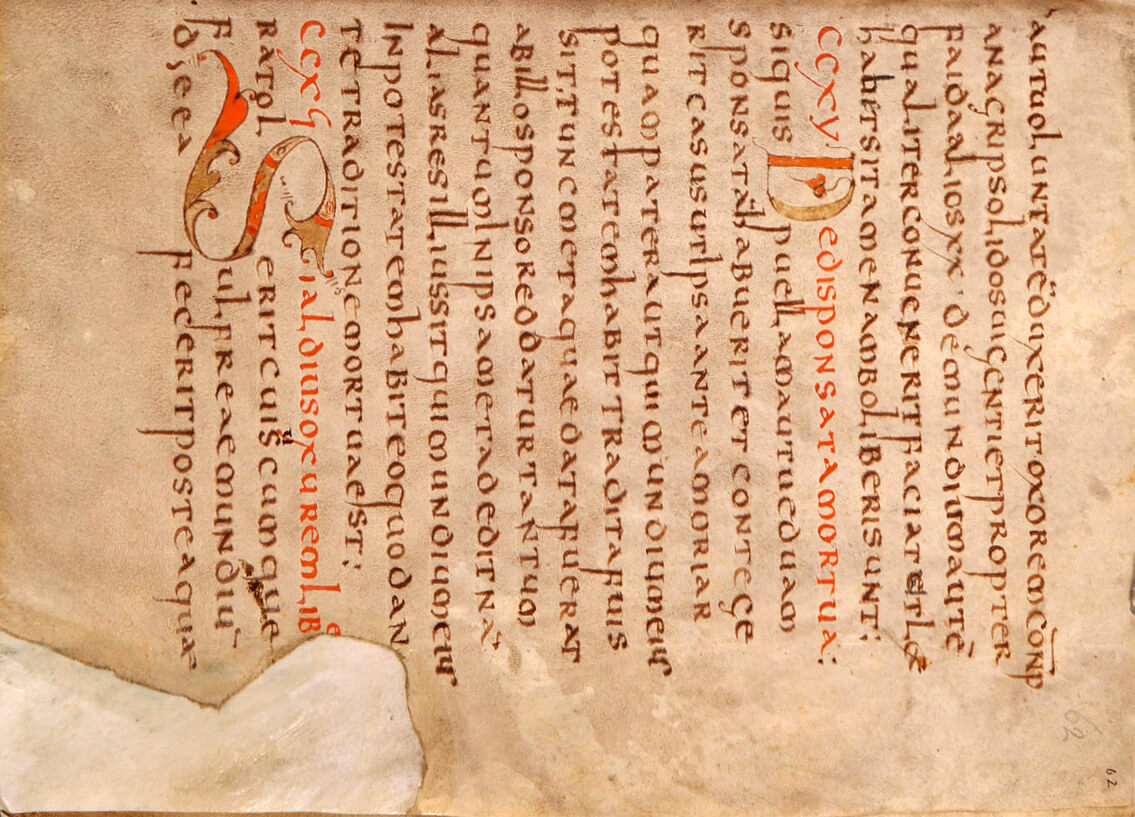 62
62
aut uoluntatē duxerit oxorem cōnp
anagrip solidos uigenti et propter
faida alios xx · de mundium autē
qualiter conuenerit faciat et lex
habet sit amen ambo liberi sunt;
CCXV De disponsata mortua;
si quis puellam aut ueduam
sponsatā habuerit et contege
rit casus ut ipsa ante moriar
quam pater aut qui mundium eius
potestatem habit tradita fuis
sit, tunc meta quae data fuerat
ab illo sponso reddatur tantum
quantum in ipsa meta dedit nā
alias res illius sit qui mundium eius
in potestatem habit eo quod an
te traditionem mortua est;
CCXVI Si aldius oxurem lib
eratol erit cuiuscumque
f ulfreae mundiū
d; ea fecerit postea quae